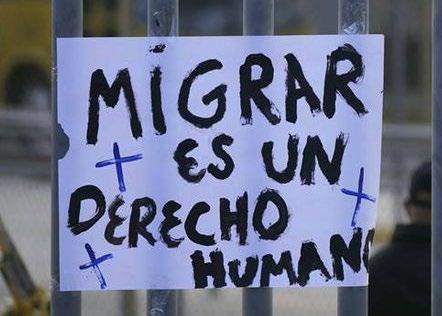 MIGRAR
ES UN
DERECHO
HUMANO